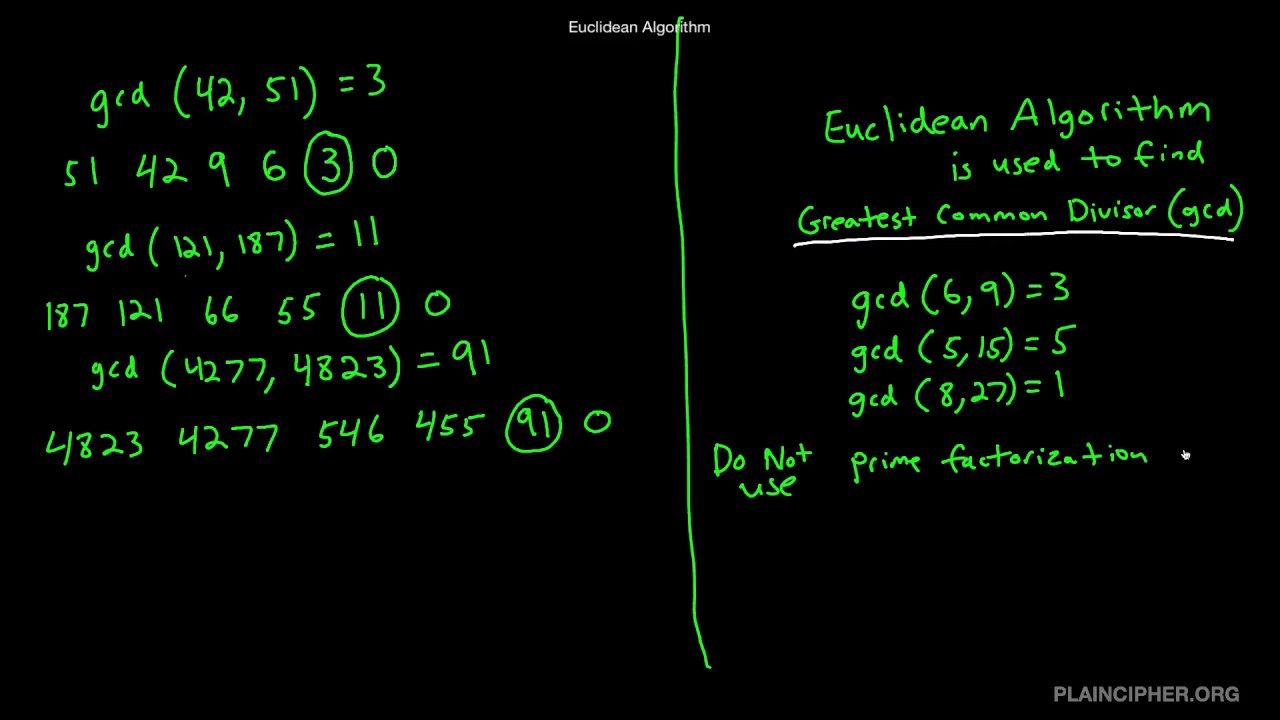 Euclidean Algorithm
gcd (42, 51) = 3
51 42 9 6 3 0
gcd (121, 187) = 11
187 121 66 55 11 0
gcd (4277, 4823) = 91
4823 4277 546 455 91 0
Euclidean Algorithm
is used to find
Greatest Common Divisor (gcd)
gcd (6, 9) = 3
gcd (5, 15) = 5
gcd (8, 27) = 1
Do Not prime factorization
use
PLAINCIPHER.ORG